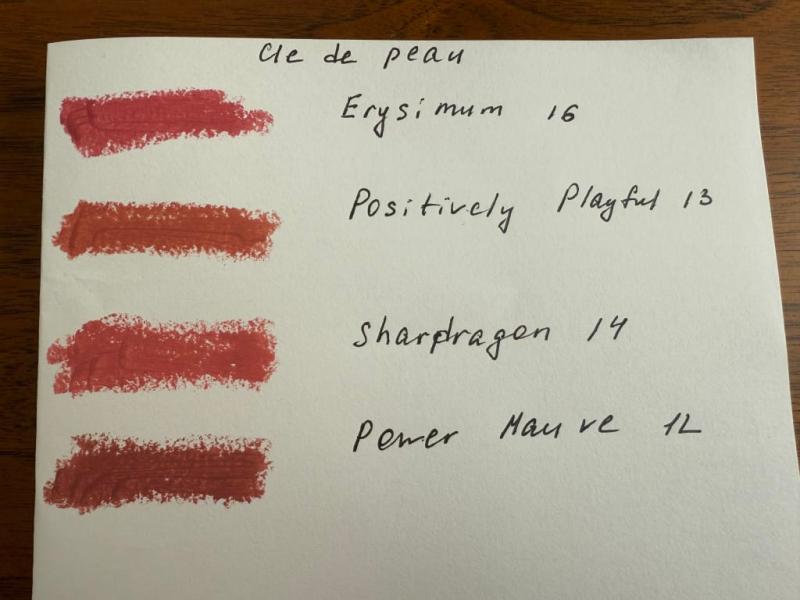 Cle de peau
Erysimum 16
Positively Playful 13
Shardragon 14
Power Mauve 12